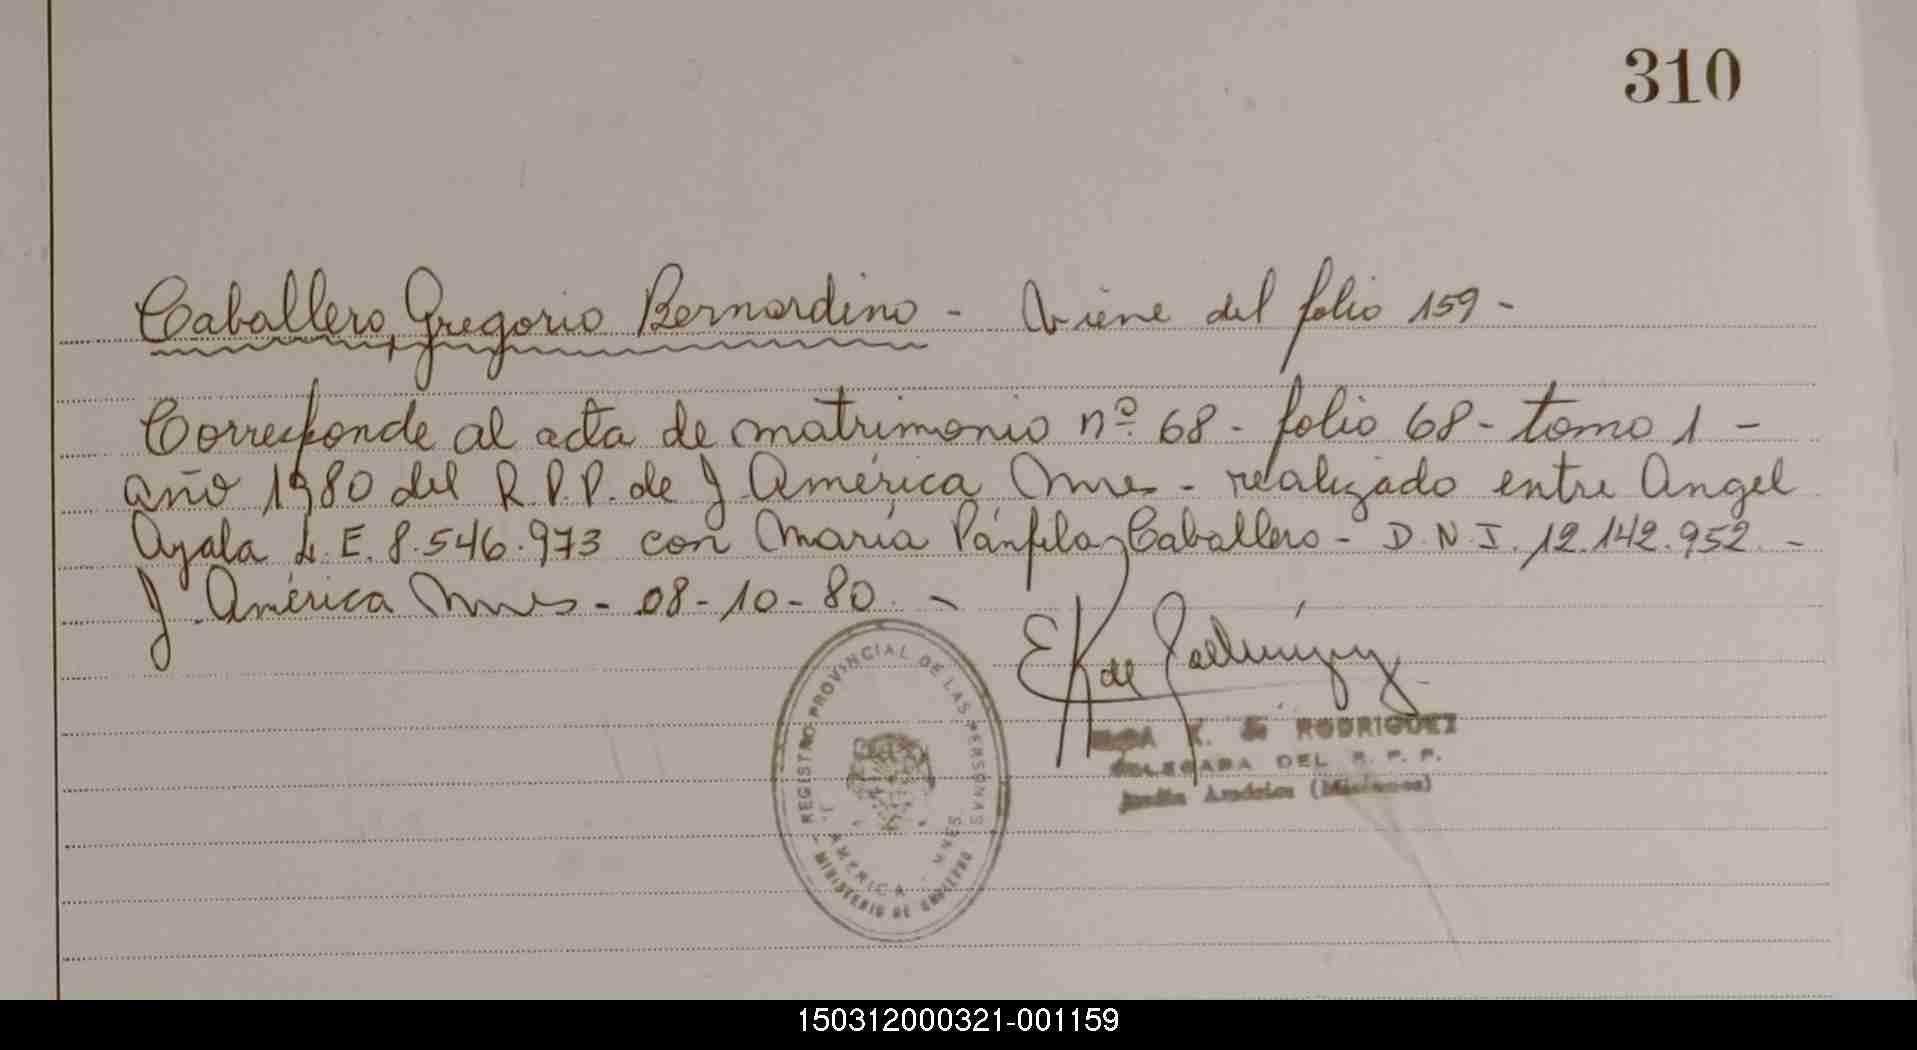 310
Caballero, Gregorio Bernardino - Viene del folio 159 -
Corresponde al acta de matrimonio nº 68 - folio 68 - tomo 1 -
año 1980 del R.P.P. de J. América Mnes - realizado entre Angel
Ayala L.E. 8.546.973 con María Pánfila Caballero - D.N.I. 12.142.952 -
J. América Mnes - 08-10-80 -
REGISTRO PROVINCIAL DE LAS PERSONAS
J. AMERICA - MNES.
MINISTERIO DE GOBIERNO
K. de RODRIGUEZ
DELEGADA DEL R. P. P.
Jardín América (Misiones)
150312000321-001159